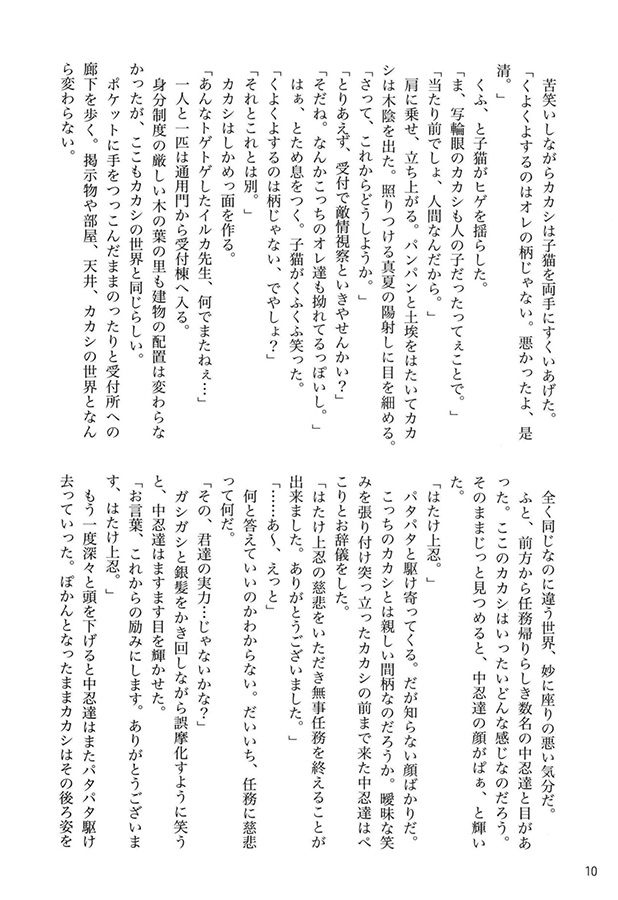 苦笑いしながらカカシは子猫を両手にすくいあげた。
「くよくよするのはオレの柄じゃない。悪かったよ、是
清。」
くふ、と子猫がヒゲを揺らした。
「ま、写輪眼のカカシも人の子だったってぇことで。」
「当たり前でしょ、人間なんだから。」
肩に乗せ、立ち上がる。パンパンと土埃をはたいてカカ
シは木陰を出た。照りつける真夏の陽射しに目を細める。
「さって、これからどうしようか。」
「とりあえず、受付で敵情視察といきやせんかい?」
「そだね。なんかこっちのオレ達も拗れてるっぽいし。」
はぁ、とため息をつく。子猫がくふくふ笑った。
「くよくよするのは柄じゃない、でやしょ?」
「それとこれとは別。」
カカシはしかめっ面を作る。
「あんなトゲトゲしたイルカ先生、何でまたねぇ…」
一人と一匹は通用門から受付棟へ入る。
身分制度の厳しい木の葉の里も建物の配置は変わらな
かったが、ここもカカシの世界と同じらしい。
ポケットに手をつっこんだままのったりと受付所への
廊下を歩く。掲示物や部屋、天井、カカシの世界となん
ら変わらない。
全く同じなのに違う世界、妙に座りの悪い気分だ。
ふと、前方から任務帰りらしき数名の中忍達と目があ
った。ここのカカシはいったいどんな感じなのだろう。
そのままじっと見つめると、中忍達の顔がぱぁ、と輝い
た。
「はたけ上忍。」
パタパタと駆け寄ってくる。だが知らない顔ばかりだ。
こっちのカカシとは親しい間柄なのだろうか。曖昧な笑
みを張り付け突っ立ったカカシの前まで来た中忍達はぺ
こりとお辞儀をした。
「はたけ上忍の慈悲をいただき無事任務を終えることが
出来ました。ありがとうございました。」
「……あ〜、えっと」
何と答えていいのかわからない。だいいち、任務に慈悲
って何だ。
「その、君達の実力…じゃないかな?」
ガシガシと銀髪をかき回しながら誤魔化すように笑う
と、中忍達はますます目を輝かせた。
「お言葉、これからの励みにします。ありがとうございま
す、はたけ上忍。」
もう一度深々と頭を下げると中忍達はまたパタパタ駆け
去っていった。ぽかんとなったままカカシはその後ろ姿を
10